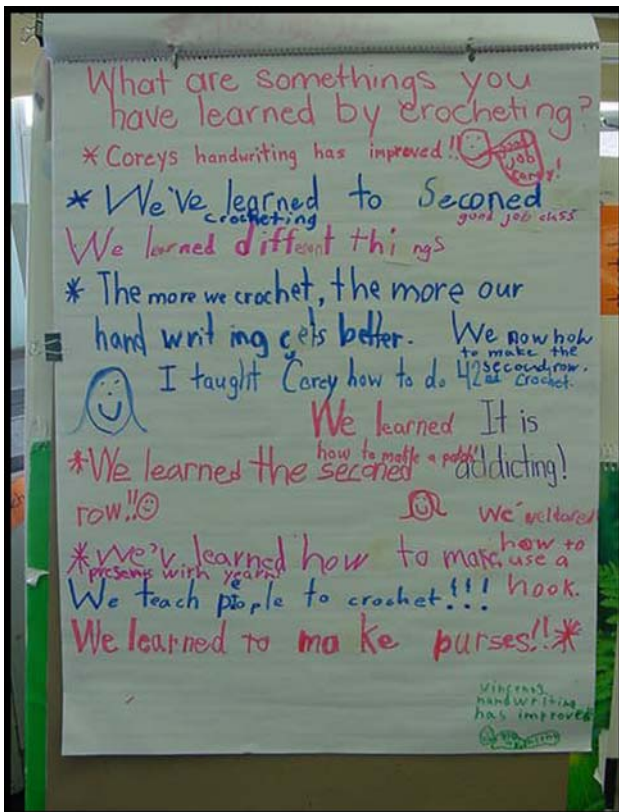 What are somethings you
have learned by crocheting?
* Coreys handwriting has improved!!
good
job
corey!
* We've learned to Seconed
crocheting
good job class
We learned different things
* The more we crochet, the more our
hand writing gets better.
We now how
to make the
second row.
I taught Corey how to do
crochet.
We learned
how to make a patch!
It is
addicting!
* We learned the seconed
row!!
We'
how to
use a
hook.
* We'v learned how to make
presents with yearn!
We teach people to crochet!!!
We learned to make purses!! *
vincents
handwriting
has improved